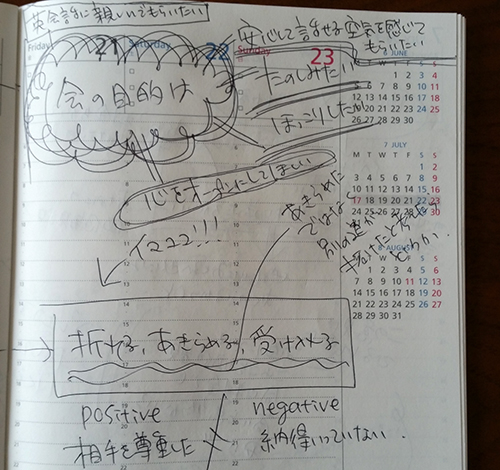 英会話に親しんでもらいたい
安心して話せる空気を感じて
もらいたい
Friday 21 Saturday 22 Sunday 23
会の目的は
たのしみたい
ほっこりしたい
心をオープンにしてほしい
あきらめた
ではなく
別の道が
イママ!!!
折れる, あきらめる, 受け入れる
positive
相手を尊重した
negative
納得いっていない.
6 JUNE
1 2 3 4
5 6 7 8 9 10 11
12 13 14 15 16 17 18
19 20 21 22 23 24 25
26 27 28 29 30
7 JULY
M T W T F S S
1 2
3 4 5 6 7 8 9
10 11 12 13 14 15 16
17 18 19 20 21 22 23
24
8 AUGUST
7 8 9 10 11 12 13
14 15 16 17 18 19 20
21 22 23 24 25 26 27
28 29 30 31